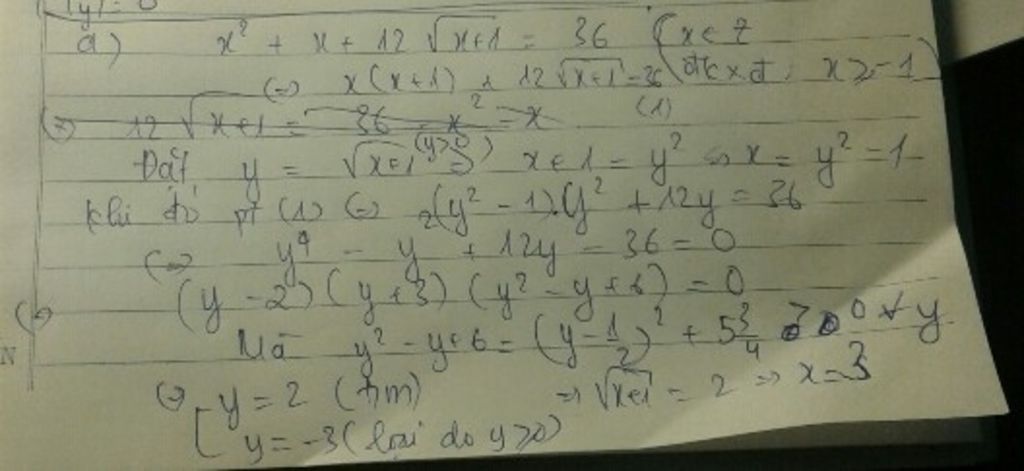 (y) = 0
a) x² + x + 12√(x+1) = 36 (x ∈ Z
(=) x(x+1) + 12√(x+1) = 36 (đkxđ: x ≥ -1)
(1)
(=) 12√(x+1) = 36 - x² - x
Đặt y = √(x+1) (y≥0) => x+1 = y² => x = y² - 1
Khi đó pt (1) (=) (y² - 1).y² + 12y = 36
(=) y⁴ - y² + 12y - 36 = 0
(=) (y - 2)(y + 3)(y² - y + 6) = 0
Mà y² - y + 6 = (y - 1/2)² + 5 3/4 > 0 ∀ y
(=) [ y = 2 (tm) => √(x+1) = 2 => x = 3
y = -3 (loại do y ≥ 0)
N